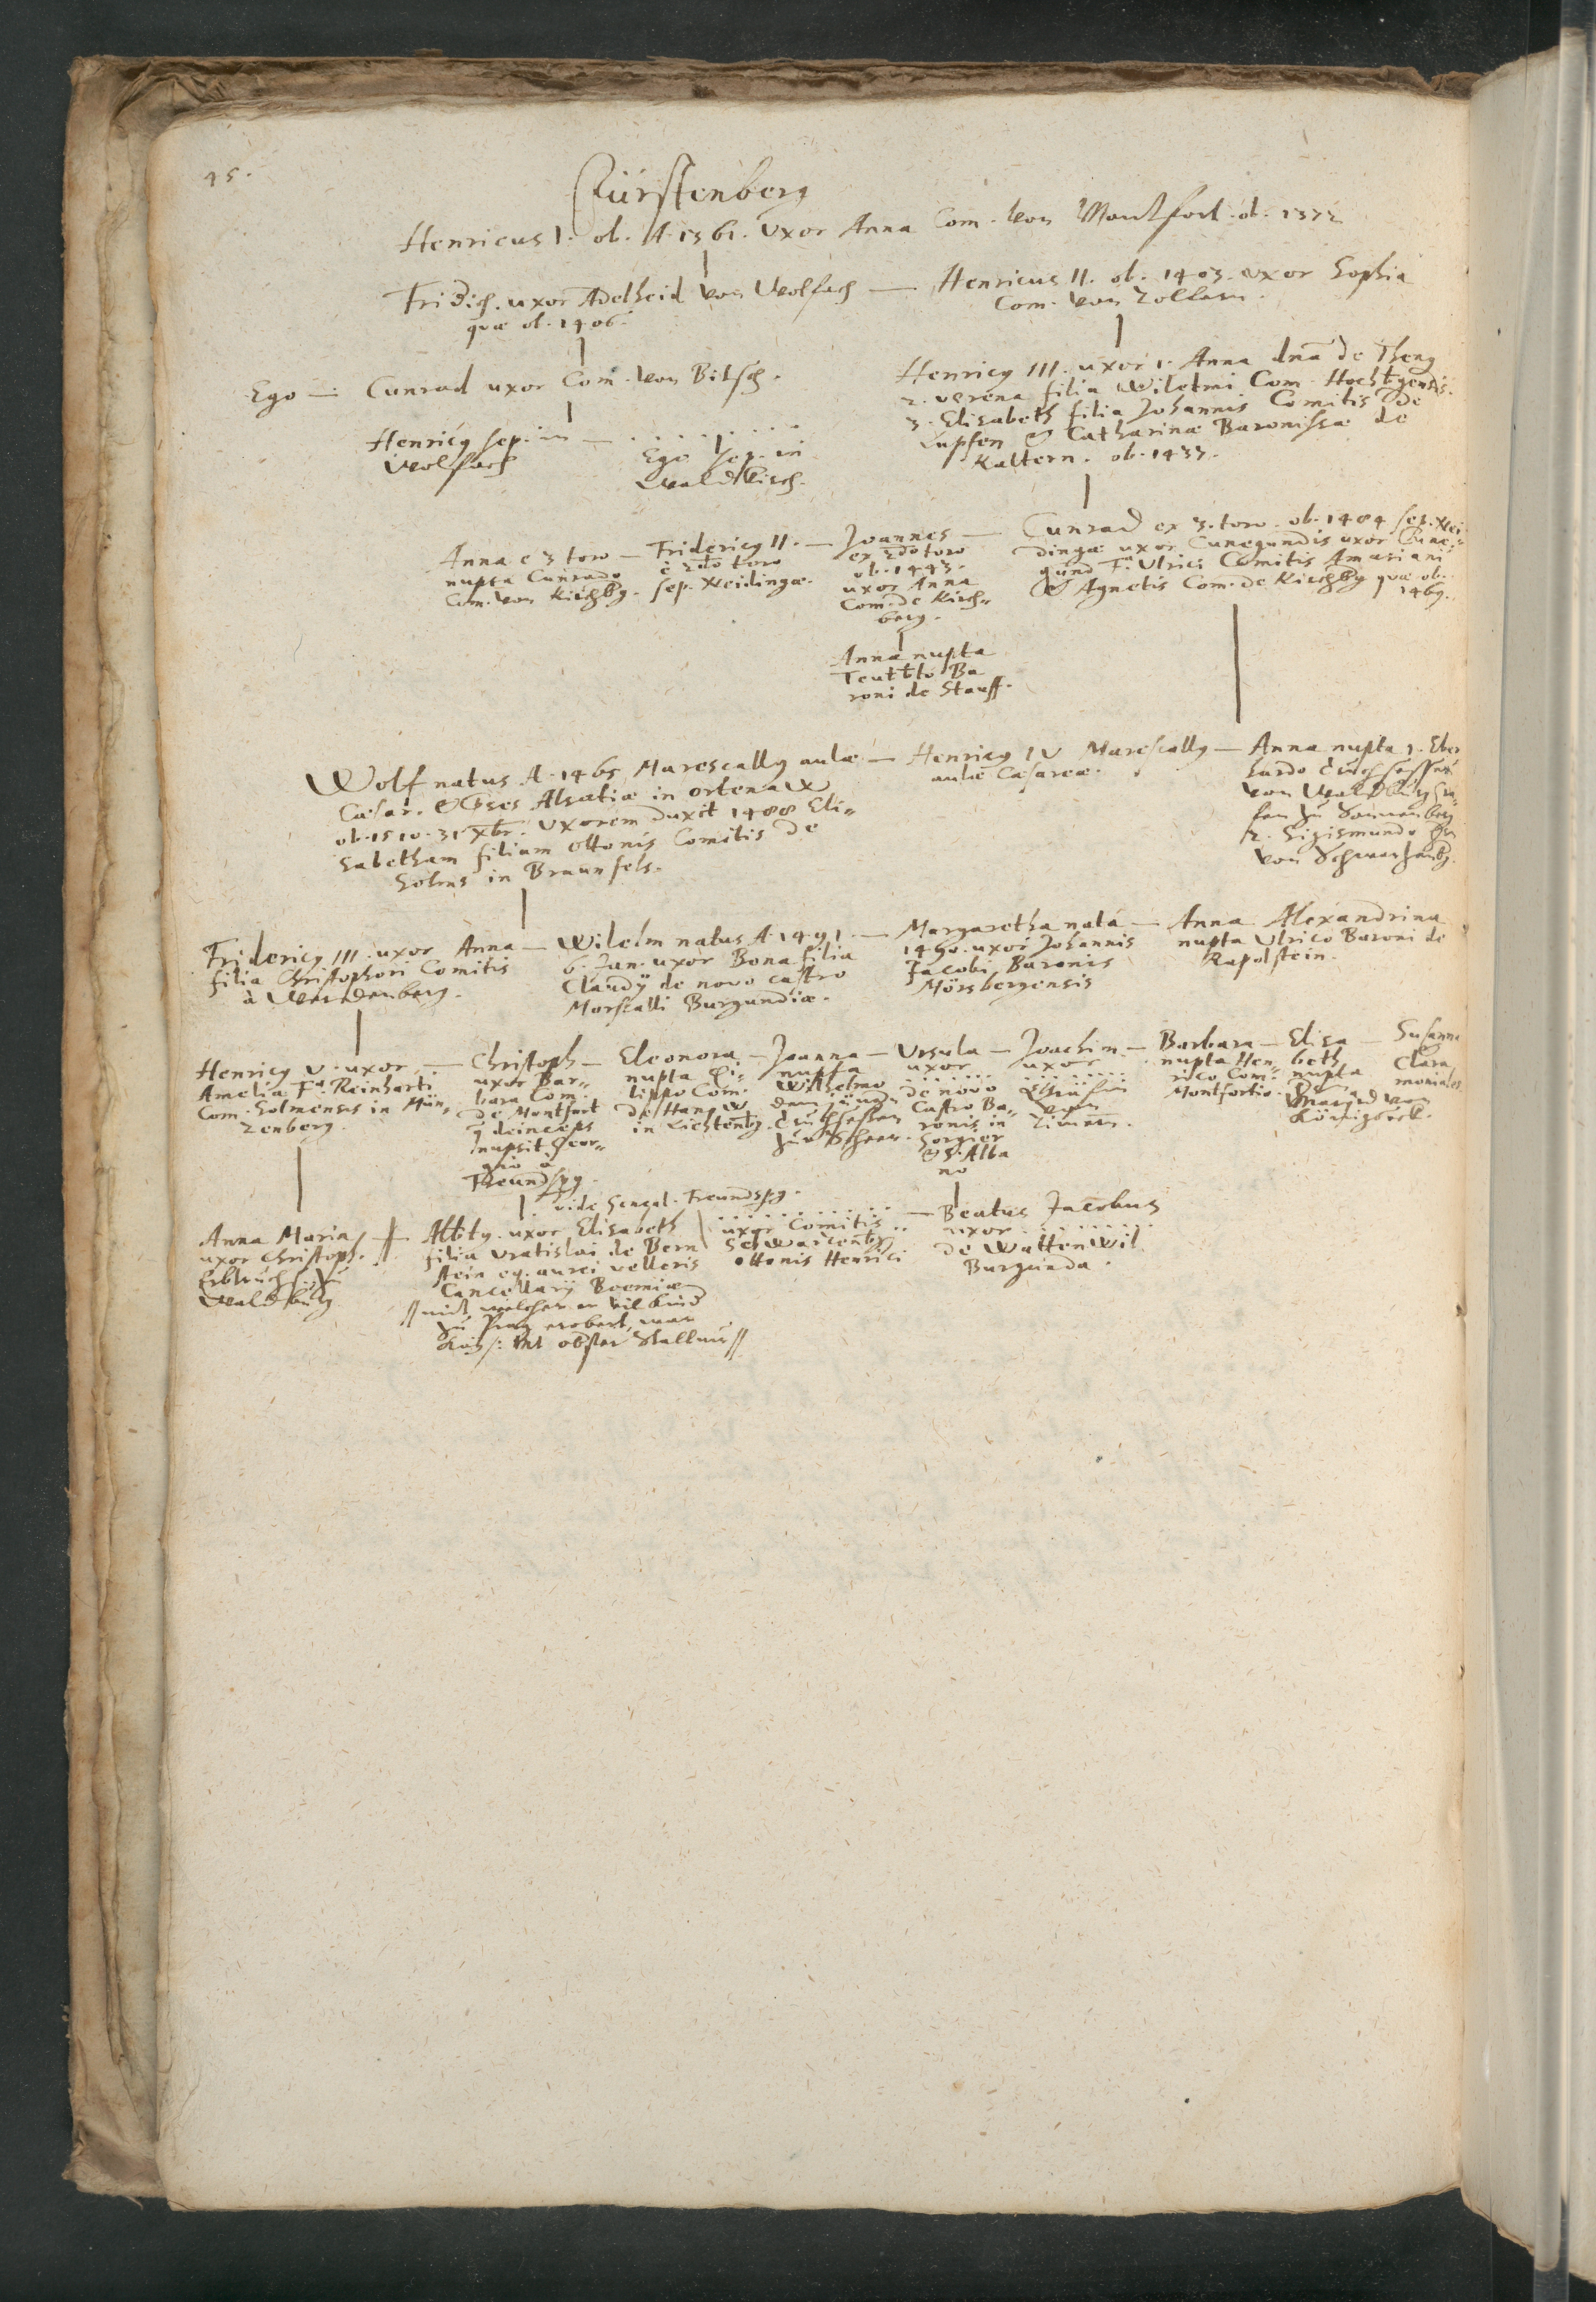 45.
Fürstenberg
Henricus I. ob. A. 1361. Uxor Anna Com. von Montfort. ob. 1372
Fridich. uxor Adelheid von Wolfach —
quæ ob. 1406.
Henricus II. ob. 1403. uxor Sophia
Com. von Zollern.
Ego — Cunrad uxor Com. von Bitsch.
Henricy III. uxor 1. Anna dña de Theng
2. Verena filia Wilelmi Com.
3. Elisabeth filia Johannis Comitis de
Lupfen & Catharinæ Baronissæ de
ob. 1433.
Henricy sep. in —
Wolfach
. . . . . . . . .
Ego sep. in
Waldkirch.
Anna e 3 toro —
nupta Cunrado
Com. von Kirchbg.
Fridericy II. —
è 2do toro
sep. Neidingæ.
Joannes —
ex 2do toro
ob. 1443.
uxor Anna
Com. de Kirch=
berg.
Cunrad ex 3. toro. ob. 1484 sep. Nei=
dingæ uxor Cunegundis uxor Cune=
gund F. Ulrici Comitis
& Agnetis Com. de Kirchbg quæ ob.
1469.
Anna nupta
Ba
roni de Stauff.
Wolf natus A. 1465 Marescally aulæ —
Cæsar. & Alsatiæ in ortenaw
ob. 1510. 31 Xbr. Uxorem duxit 1488 Eli=
sabetham filiam Ottonis Comitis de
Solms in Braunfels.
Henricy IV Marescally —
aulæ Cæsareæ.
Anna nupta 1. Eber
hardo Truchsessen
von Waldburg Gra=
fen zu Sonnenberg
2. Sigismundo
von Schwarzenbg.
Fridericy III. uxor Anna —
filia Christophori Comitis
à Werdenberg.
Wilelm natus A. 1491. —
6. Jan. uxor Bona filia
Claudÿ de novo castro
Morscalli Burgundiæ.
Margaretha nata —
1490. uxor Johannis
Jacobi Baronis
Mörsbergensis
Anna Alexandrina
nupta Ulrico Baroni de
Rapolstein.
Henricy V. uxor —
Amelia Fa. Reinharti
Com. Solmensis in Mün=
zenberg.
Christoph —
uxor Bar=
bara Com.
de Montfort
q deinceps
nupsit Geor=
gio à
Freundspg.
vide Geneal. Freundspg.
Eleonora —
nupta Pi=
lippo Com.
de Hanaw
in Lichtenbg.
Joanna —
nupta
Wilhelmo
dem jüng=
Truchsessen
zur Scheer.
Ursula —
uxor
. . . . . . .
de novo
Castro Ba=
ronis in
Gorgier
& S. Alba
no
Joachim —
uxor
. . . . . . .
Gräfin
von
Zimern.
Barbara —
nupta Hen=
rico Com.
Montfortio.
Elisa —
beth
nupta
von
Königseck.
Susanna
Clara
moniales
Anna Maria
uxor Christoph.
Erbtruchs. zu
Waldburg
Albty. uxor Elisabeth
filia Vratislai de Bern
stein eq. aurei velleris
Cancellarÿ Boemiæ
// mit welcher er vil kind
zu Prag erobert, war
Kays: Mt obster Stallmr //
. . . . . . . . . . . —
uxor Comitis
Schwarzenbg
Ottonis Henrici
Beatus Jacobus
uxor . . . . . . . .
de Wattenwil
Burgunda.